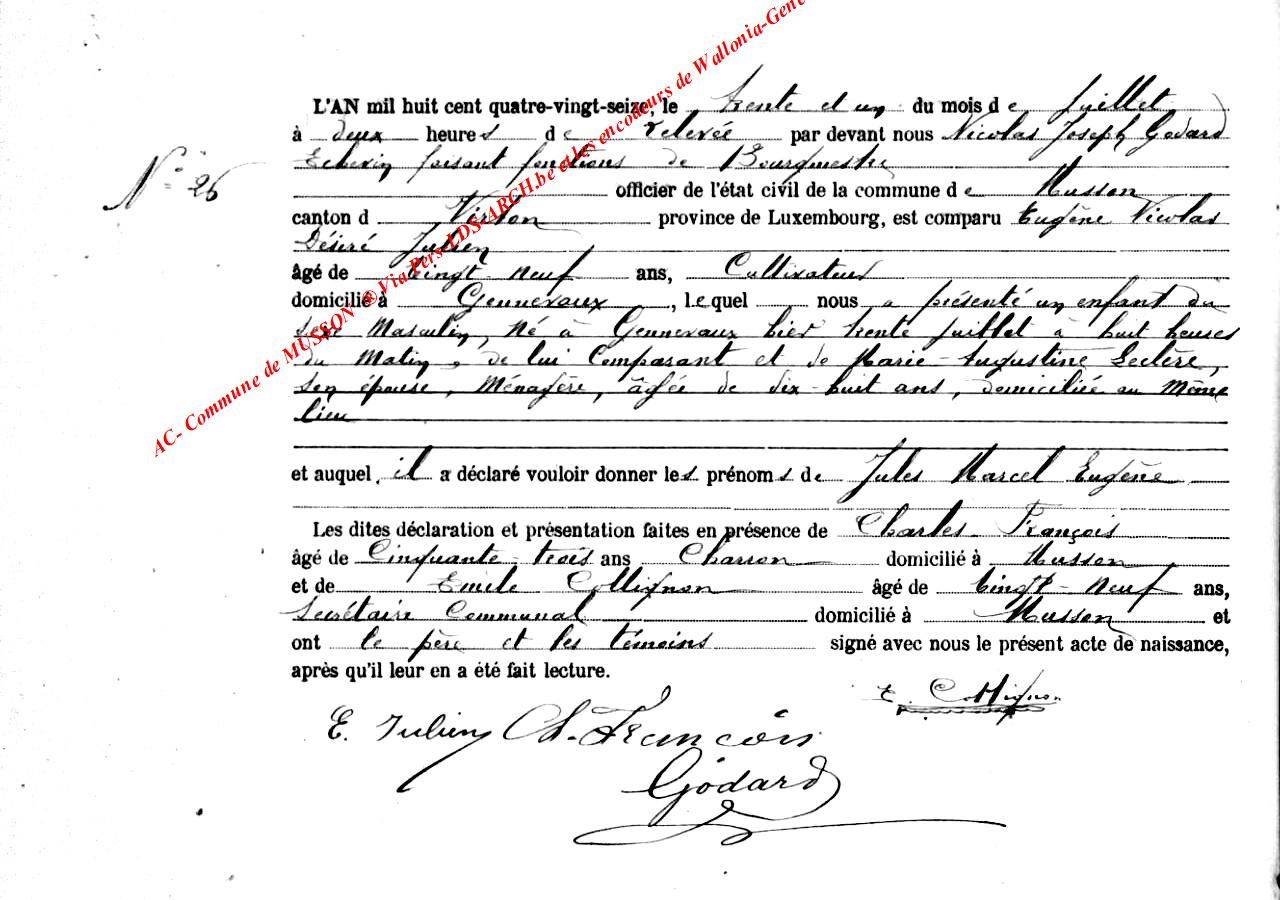 AC- Commune de MUSSON ® Via Pers-LDS-ARCH.be et les encodeurs de Wallonia-Gene
L'AN mil huit cent quatre-vingt-seize, le trente et un du mois de Juillet
à deux heures de relevée par devant nous Nicolas Joseph Godard
N° 26
Echevin faisant fonctions de Bourgmestre
officier de l'état civil de la commune de Musson
canton d Virton province de Luxembourg, est comparu Eugène Nicolas
Désiré Julien
âgé de Vingt-neuf ans, Cultivateur
domicilié à Gennevaux, lequel nous a présenté un enfant du
sexe Masculin, Né à Gennevaux hier trente juillet à huit heures
du Matin, de lui Comparant et de Marie-Augustine Leclère,
son épouse, Ménagère, âgée de dix-huit ans, domiciliée au Même
lieu
et auquel il a déclaré vouloir donner les prénoms de Jules Marcel Eugène
Les dites déclaration et présentation faites en présence de Charles François
âgé de Cinquante-trois ans Charron domicilié à Musson
et de Emile Collignon âgé de Vingt-neuf ans,
Secrétaire Communal domicilié à Musson et
ont le père et les témoins signé avec nous le présent acte de naissance,
après qu'il leur en a été fait lecture.
E. Collignon
E. Julien Ch. François
Godard